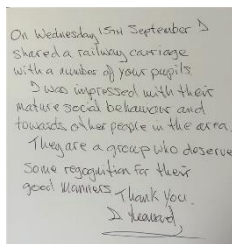 On Wednesday 15th September I
shared a railway carriage
with a number of your pupils.
I was impressed with their
mature social behaviour and
towards other people in the area.
They are a group who deserve
some recognition for their
good manners Thank you.
D